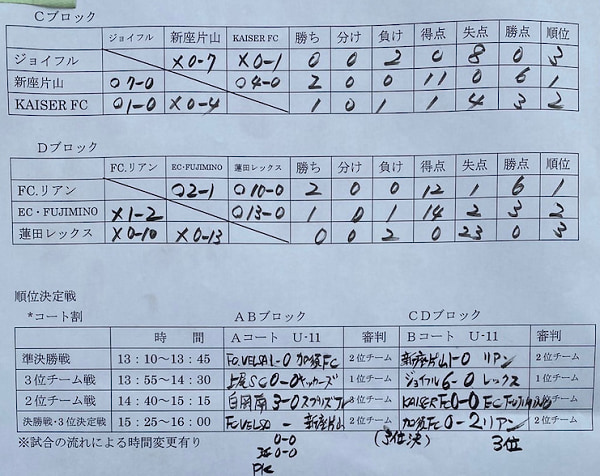 Cブロック
ジョイフル 新座片山 KAISER FC 勝ち 分け 負け 得点 失点 勝点 順位
ジョイフル ×0-7 ×0-1 0 0 2 0 8 0 3
新座片山 ○7-0 ○4-0 2 0 0 11 0 6 1
KAISER FC ○1-0 ×0-4 1 0 1 1 4 3 2
Dブロック
FC.リアン EC・FUJIMINO 蓮田レックス 勝ち 分け 負け 得点 失点 勝点 順位
FC.リアン ○2-1 ○10-0 2 0 0 12 1 6 1
EC・FUJIMINO ×1-2 ○13-0 1 0 1 14 2 3 2
蓮田レックス ×0-10 ×0-13 0 0 2 0 23 0 3
順位決定戦
*コート割 ABブロック CDブロック
時 間 Aコート U-11 審判 Bコート U-11 審判
準決勝戦 13：10～13：45 FC VELSA 1-0 加須FC 2位チーム 新座片山 1-0 リアン 2位チーム
3位チーム戦 13：55～14：30 上尾SC 0-0 キッカーズ 1位チーム ジョイフル 6-0 レックス 1位チーム
2位チーム戦 14：40～15：15 白岡南 3-0 3位チーム KAISER FC 0-0 EC FUJIMINO
決勝戦・3位決定戦 15：25～16：00 FC VELSA - 新座片山 2位チーム 加須FC 0-2 リアン 2位チーム
※試合の流れによる時間変更有り 0-0 (3位決) 3位
0-0
PK